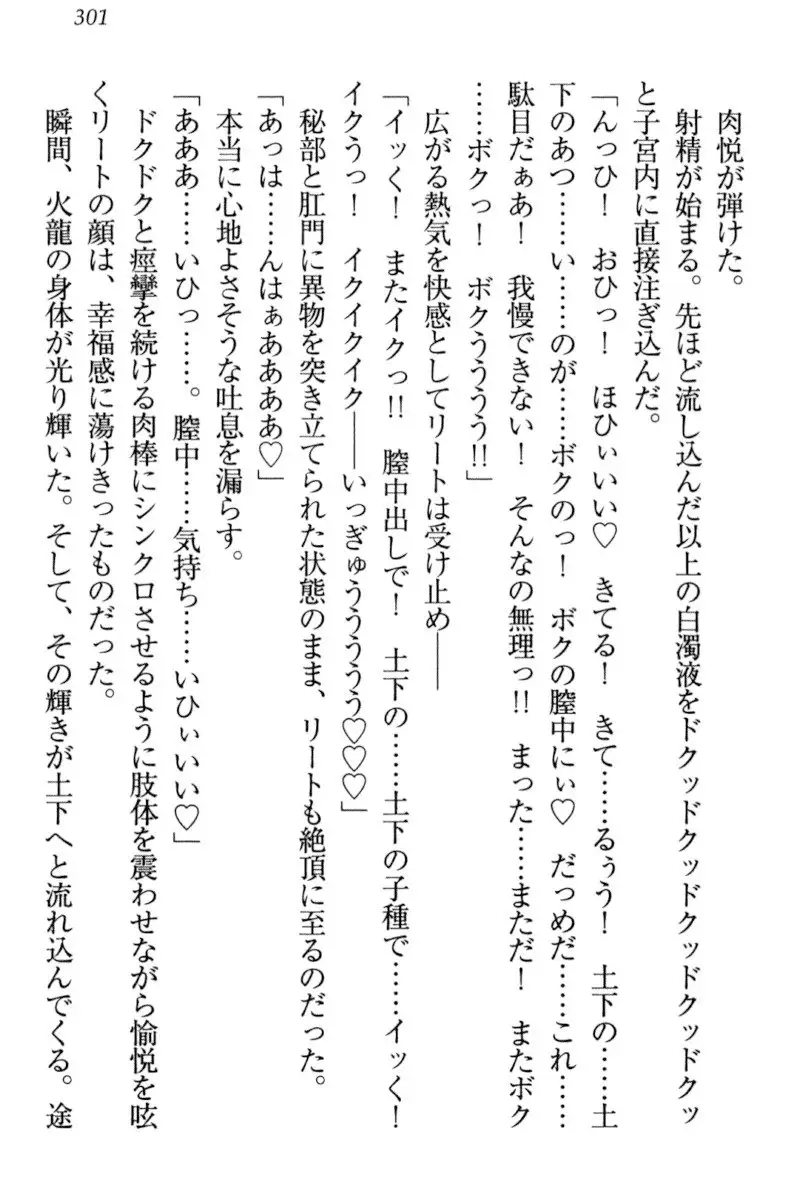 301
肉悦が弾けた。
射精が始まる。先ほど流し込んだ以上の白濁液をドクッドクッドクッドクッドクッ
と子宮内に直接注ぎ込んだ。
「んっひ！　おひっ！　ほひぃいい♡　きてる！　きて……るぅう！　土下の……土
下のあつ……い……のが……ボクのっ！　ボクの膣中にぃ♡　だっめだ……これ……
駄目だぁあ！　我慢できない！　そんなの無理っ!!　まった……まただ！　またボク
……ボクっ！　ボクうううう!!」
広がる熱気を快感としてリートは受け止め――
「イッく！　またイクっ!!　膣中出しで！　土下の……土下の子種で……イッく！
イクうっ！　イクイクイク――いっぎゅうううう♡♡♡」
秘部と肛門に異物を突き立てられた状態のまま、リートも絶頂に至るのだった。
「あっは……んはぁああああ♡」
本当に心地よさそうな吐息を漏らす。
「あああ……いひっ……。膣中……気持ち……いひぃいい♡」
ドクドクと痙攣を続ける肉棒にシンクロさせるように肢体を震わせながら愉悦を呟
くリートの顔は、幸福感に蕩けきったものだった。
瞬間、火龍の身体が光り輝いた。そして、その輝きが土下へと流れ込んでくる。途